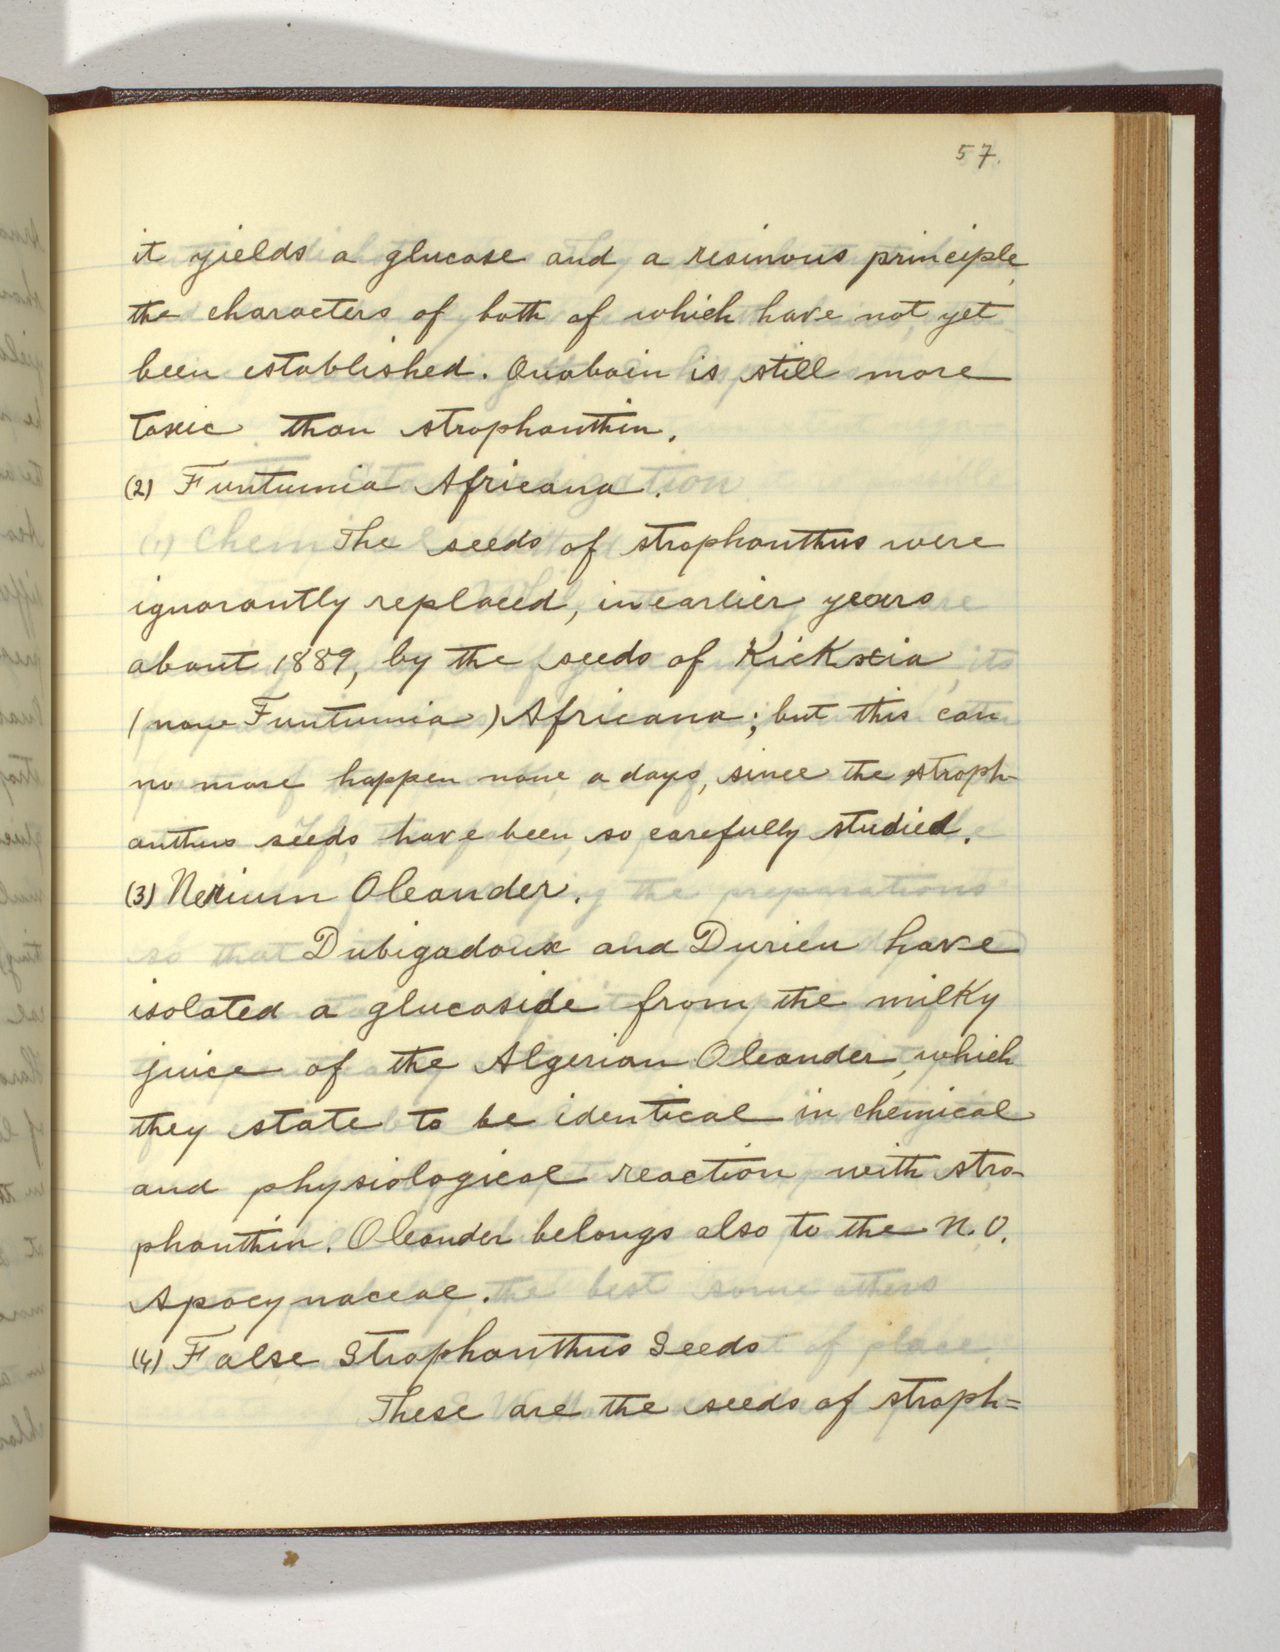 57.
it yields a glucose and a resinous principle,
the characters of both of which have not yet
been established. Ouabain is still more
toxic than strophanthin.
(2) Funtumia Africana.
The seeds of strophanthus were
ignorantly replaced, in earlier years
about 1889, by the seeds of Kickxia
(now Funtumia) Africana; but this can
no more happen now a days, since the stroph-
anthus seeds have been so carefully studied.
(3) Nerium Oleander.
Dubigadoux and Durieu have
isolated a glucoside from the milky
juice of the Algerian Oleander, which
they state to be identical in chemical
and physiological reaction with stro-
phanthin. Oleander belongs also to the N.O.
Apocynaceae.
(4) False Strophanthus Seeds
These are the seeds of stroph=